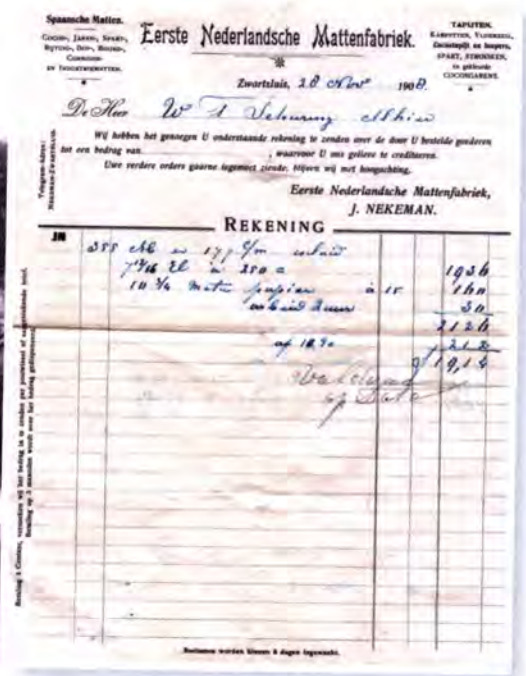 Spaansche Matten.
COCOS-, JAPAN-, SPART-,
RIETEN-, BOUW-,
EN INDUSTRIEMATTEN.
Eerste Nederlandsche Mattenfabriek.
TAPIJTEN.
KARPETTEN, VLOERZEIL,
Cocostapijt en loopers,
SPART, STROOKEN,
in gekleurde
COCOSGARENS.
Zwartsluis, 28 Nov 1908.
De Heer W
Wij hebben het genoegen U onderstaande rekening te zenden over de door U bestelde goederen
tot een bedrag van , waarvoor U ons gelieve te crediteeren.
Uwe verdere orders gaarne tegemoet ziende, blijven wij met hoogachting,
Eerste Nederlandsche Mattenfabriek,
J. NEKEMAN.
Telegram-Adres:
NEKEMAN-ZWARTSLUIS.
REKENING
385
7 13/16 El a 250 = 1936
10 3/4 Meter papier a 15 160
arbeid 2 uur 30
2126
af 10 % 212
f 19,14
Voldaan
Betaling à Contant, verzoeken wij het bedrag in te zenden per postwissel of aangeteekende brief.
Betaling op 3 maanden wordt over het bedrag gedisponeerd.
Reclames worden binnen 8 dagen ingewacht.